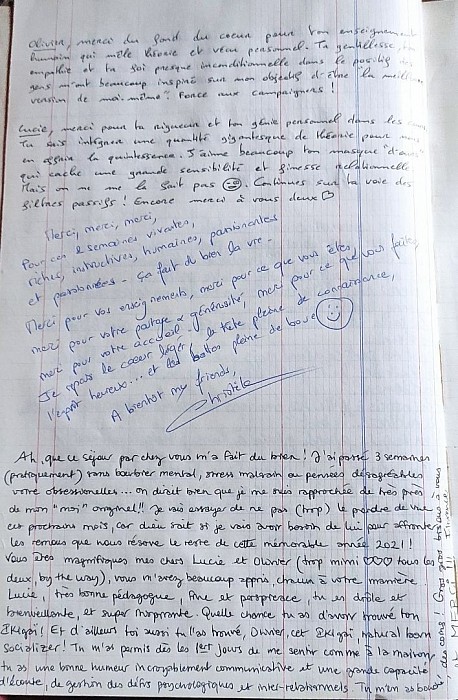 Olivier, merci du fond du coeur pour ton enseignement
humain qui mêle théorie et vécu personnel. Ta gentillesse, ton
empathie et ta foi presque inconditionnelle dans le positif des
gens m'ont beaucoup inspiré sur mon objectif d'être "la meilleure
version de moi-même". Force aux campagnards !
Lucie, merci pour ta rigueur et ton génie personnel dans les
Tu sais intégrer une quantité gigantesque de théorie pour
en offrir la quintessence. J'aime beaucoup ton masque
qui cache une grande sensibilité et finesse relationnelle
Mais on ne me la fait pas ☺. Continues sur ta voie des
filtres passifs ! Encore merci à vous deux ♡
Merci, merci, merci,
Pour ces 2 semaines vivantes,
riches, instructives, humaines, passionantes
et passionnées. Ça fait du bien la vie.
Merci pour vos enseignements, merci pour ce que vous êtes,
merci pour votre partage & générosité, merci pour ce que vous faites,
merci pour votre accueil.
Je repars le coeur léger, la tête pleine de connaissance,
l'esprit heureux... et les bottes pleine de boue ☺
A bientôt my friends,
Christèle
Ah, que ce séjour par chez vous m'a fait du bien ! J'ai passé 3 semaines
(pratiquement) sans bourbier mental, stress malsain ou pensées désagréables
voire obsessionelles... on dirait bien que je me suis rapprochée de très près
de mon "moi" originel !! Je vais essayer de ne pas (trop) le perdre de vue
ces prochains mois, car dieu sait si je vais avoir besoin de lui pour affronter
les remous que nous réserve le reste de cette mémorable année 2021 !
Vous êtes magnifiques mes chers Lucie et Olivier (trop mimi ♡♡♡ tous les
deux, by the way), vous m'avez beaucoup appris, chacun à votre manière.
Lucie, très bonne pédagogue, fine et perspicace, tu es drôle et
bienveillante, et super inspirante. Quelle chance tu as d'avoir trouvé ton
IKigaï ! Et d'ailleurs toi aussi tu l'as trouvé, Olivier, cet IKigaï natural born
socializer ! Tu m'as permis dès les 1er jours de me sentir comme à la maison,
tu as une bonne humeur incroyablement communicative et une grande capacité
d'écoute, de gestion des défis psychologiques et inter-relationnels. Tu m'en as bouché
des coins ! Gros gros bisous à vous
et MERCI !!!